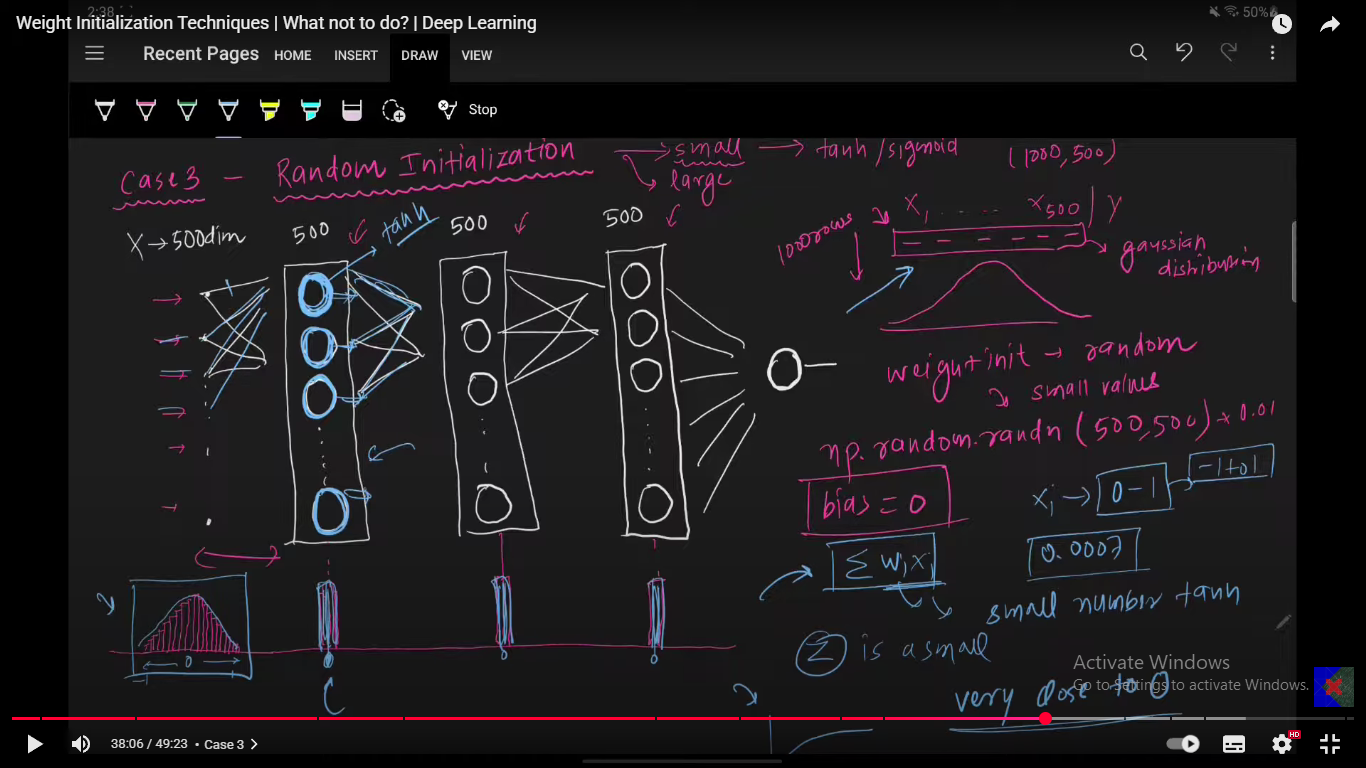 2:38
50%
Weight Initialization Techniques | What not to do? | Deep Learning
Recent Pages HOME INSERT DRAW VIEW
Stop
Case 3 - Random Initialization → small → tanh/sigmoid (1000,500)
large
X → 500dim 500 tanh 500 500
1000 rows
X1 ..... X500 | Y
gaussian
distribution
weight init → random
small values
np.random.randn (500,500) * 0.01
bias = 0
xi → 0-1 -1 to 1
Σ wixi
0.0007
small number tanh
Σ is a small
very close to 0
-1 0
0 0 0
Activate Windows
Go to Settings to activate Windows.
38:06 / 49:23 • Case 3 >
HD